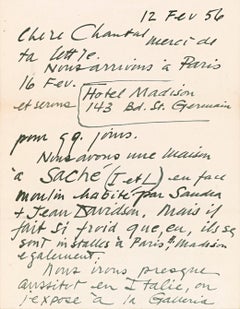 12 Fev 56
Chere Chantal
merci de
ta lettre.
Nous arrivons à Paris
16 Fev.
et serons
Hotel Madison
143 Bd. St. Germain
pour qq. jours.
Nous avons une maison
à SACHÉ (I et L) en face
moulin habité par Sandra
+ Jean Davidson. Mais il
fait si froid que, eu, ils se
sont installés à Paris, Madison
egalement.
Nous irons presque
aussitot en Italie, on
t'expose à la Galleria